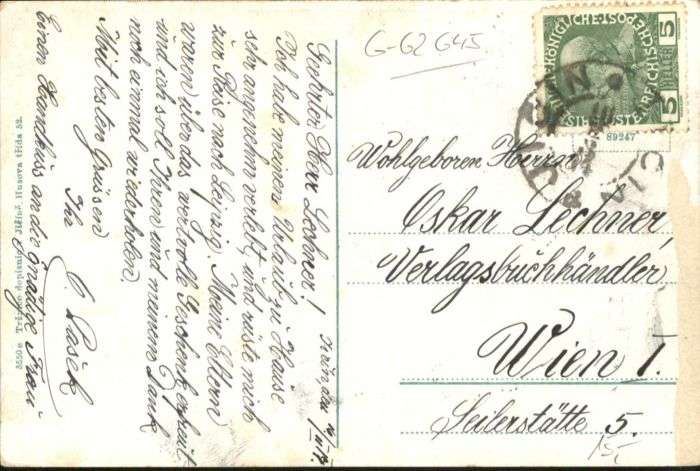 G-62 G45
5
5
HELLER
89247
JIČÍN
Wohlgeboren Herrn
Oskar Lechner,
Verlagsbuchhändler
Wien I.
Seilerstätte 5.
Geehrter Herr Lechner!
Ich habe meinen Urlaub zu Hause
sehr angenehm verlebt, und rüste mich
zur Reise nach Leipzig. Meine Eltern
waren über das wertvolle Geschenk erfreut
und ich soll Ihnen und meinem Dank
noch einmal wiederholen.
Mit besten Grüssen
Ihr
O. Pašek
Einen Handkuss an die gnädige Frau
Tržnice dopisnic, Jičín, Husova třída 52.